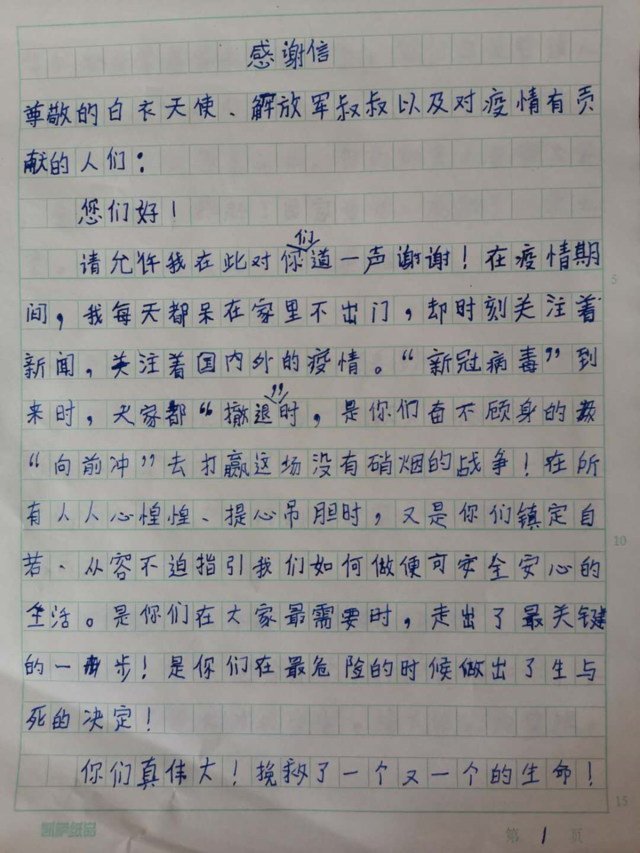 感谢信
尊敬的白衣天使、解放军叔叔以及对疫情有贡
献的人们：
您们好！
请允许我在此对你们道一声谢谢！在疫情期
间，我每天都呆在家里不出门，却时刻关注着
新闻，关注着国内外的疫情。“新冠病毒”到
来时，大家都“撤退”时，是你们奋不顾身的
“向前冲”去打赢这场没有硝烟的战争！在所
有人人心惶惶、提心吊胆时，又是你们镇定自
若、从容不迫指引我们如何做便可安全安心的
生活。是你们在大家最需要时，走出了最关键
的一步！是你们在最危险的时候做出了生与
死的决定！
你们真伟大！挽救了一个又一个的生命！
5
10
15
第 1 页